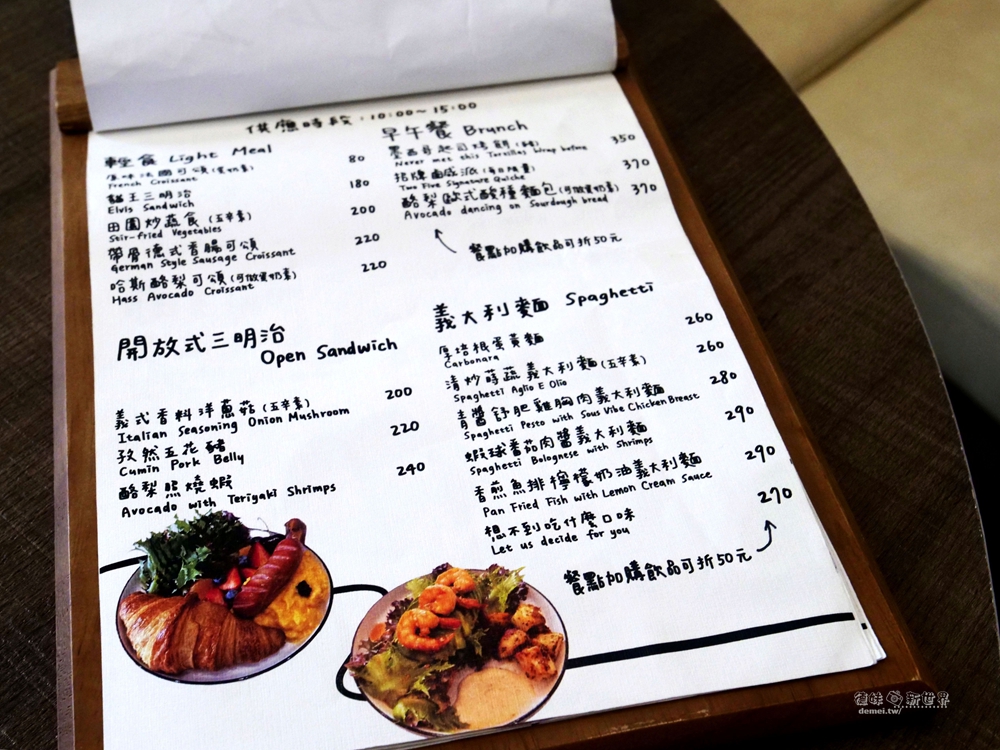 供應時段:10:00~15:00
輕食 Light Meal
原味法國可頌(蛋奶素) 80
French Croissant
貓王三明治 180
Elvis Sandwich
田園炒蔬食(五辛素) 200
Stir-fried Vegetables
帶骨德式香腸可頌 220
German Style Sausage Croissant
哈斯酪梨可頌(可做蛋奶素) 220
Hass Avocado Croissant
早午餐 Brunch
墨西哥起司烤餅 350
Never met this Tortillas Wrap before
招牌鹹派(每日限量) 370
Two Five Signature Quiche
酪梨歐式酸種麵包(可做蛋奶素) 370
Avocado dancing on Sourdough bread
餐點加購飲品可折50元
開放式三明治
Open Sandwich
義式香料洋蔥菇(五辛素) 200
Italian Seasoning Onion Mushroom
孜然五花豬 220
Cumin Pork Belly
酪梨照燒蝦 240
Avocado with Teriyaki Shrimps
義大利麵 Spaghetti
厚培根蛋黃麵 260
Carbonara
清炒蒔蔬義大利麵(五辛素) 260
Spaghetti Aglio E Olio
青醬舒肥雞胸肉義大利麵 280
Spaghetti Pesto with Sous Vibe Chicken Breast
蝦球番茄肉醬義大利麵 290
Spaghetti Bolognese with Shrimps
香煎魚排檸檬奶油義大利麵 290
Pan Fried Fish with Lemon Cream Sauce
想不到吃什麼口味 270
Let us decide for you
餐點加購飲品可折50元
德味新世界
demei.tw/